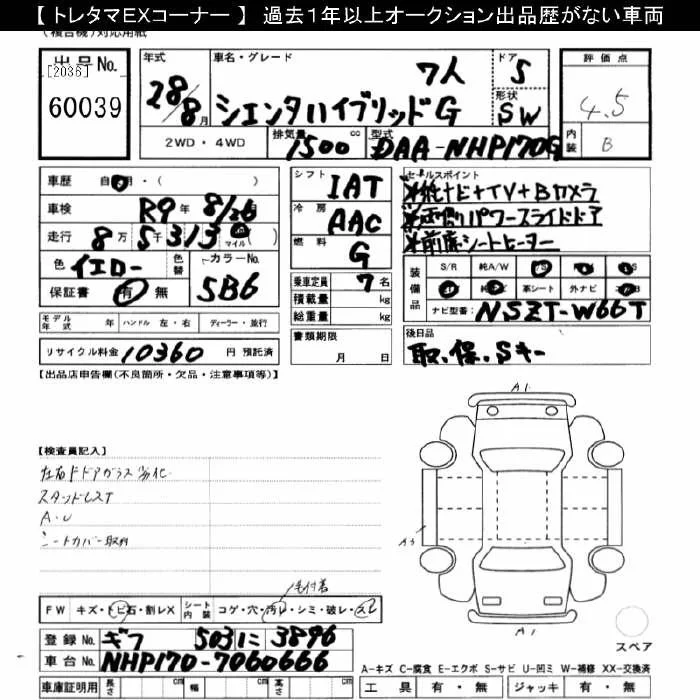 【 トレタマEXコーナー 】 過去1年以上オークション出品歴がない車両
(複合機)対応用紙
出品No.
[2036]
60039
年式
28/8月
車名・グレード
7人
シエンタハイブリッドG
ドア
5
形状
SW
評価点
4.5
内装
B
2WD ・ 4WD
排気量
1500 cc
型式
DAA-NHP170G
車歴 自 ・(　　)
車検 R9年 8/26月
走行 8万 5千 313
マイル
色 イエロー
色替
カラーNo.
5B6
保証書 有 無
シフト
IAT
冷房
AAC
燃料
G
乗車定員 7 名
積載量 kg
総重量 kg
書類期限
月 日
セールスポイント
*純ナビ+TV+Bカメラ
*両側パワースライドドア
*前席シートヒーター
装備品
S/R 純A/W P/S
革シート 外ナビ
ナビ型番: NSZT-W66T
モデル年式 年 ハンドル 左・右 ディーラー・並行
リサイクル料金 10360 円 預託済
後日品
取、保、Sキー
【出品店申告欄(不良箇所・欠品・注意事項等)】
【検査員記入】
左右Fドアガラス劣化
スタッドレスT
A・U
シートカバー取外
毛付着
FW キズ・トビ石・割レX
シート内装 コゲ・穴・汚レ・シミ・破レ・スレ
登録No. ギフ 503 に 3896
車台No. NHP170-7060666
車庫証明用 長さ cm 幅 cm 高さ cm
A1
A3
A1
スペア
A-キズ C-腐食 E-エクボ S-サビ U-凹ミ W-補修 XX-交換済
工具 有・無 ジャッキ 有・無